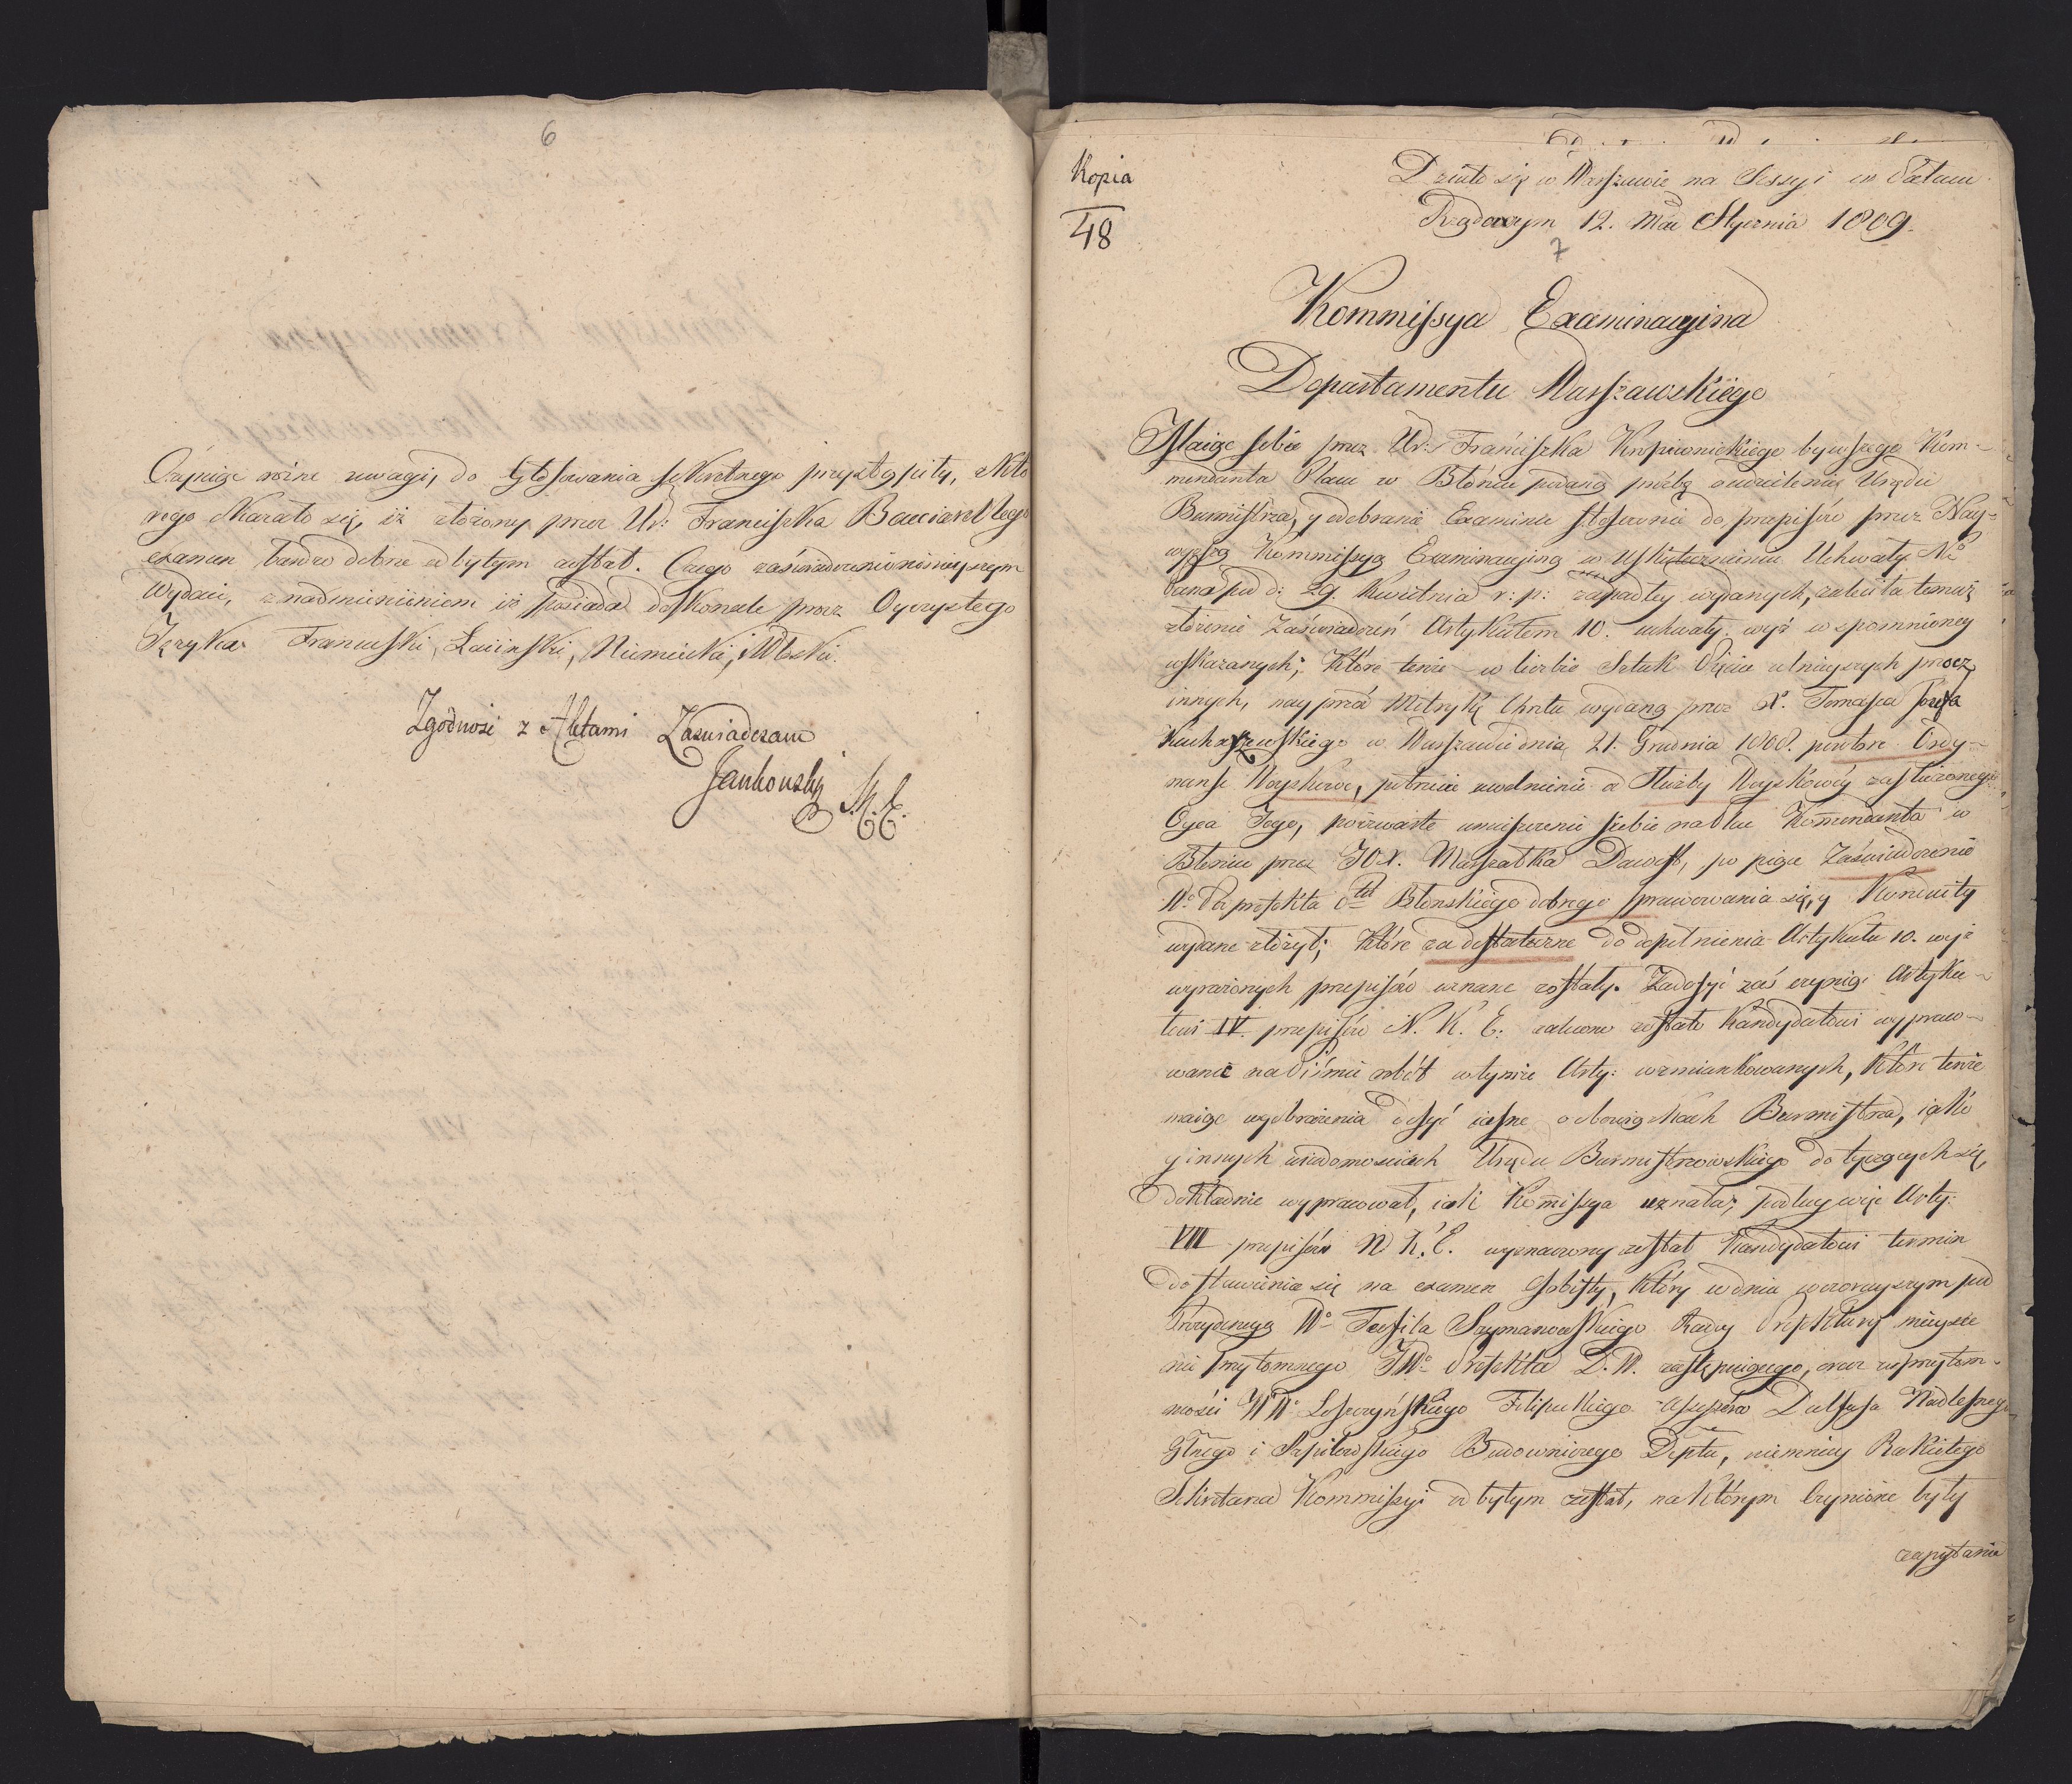 6
Czyniąc różne uwagi, do Głosowania sekretnego przystąpiły, z Któ
rego okazało się, iż złożony przez Ur: Franciszka
examen bardzo dobrze odbytym został. Czego zaświadczenie ninieyszym
wydaie, z nadmienieniem iż posiada doskonale procz Oyczystego
Języka Francuski, Łaciński, Niemiecki, i Włoski.
Zgodność z Aktami Zaświadczam
Jankowski S.K.E.
Kopia
48
Działo się w Warszawie na Sessyi w Pałacu
Rządowym 12. Mca Stycznia 1809.
7
Kommissya Examinacyina
Departamentu Warszawskiego
Maiąc sobie przez Ur: Franciszka Kropiwnickiego bywszego Kom-
mendanta Placu w Błoniu podaną proźbę o udzielenie Urzędu
Burmistrza, y odebranie Examinu stosownie do przepisów przez Nay-
wyższą Kommissyą Examinacyiną w uskutecznieniu Uchwały
pod d: 29. Kwietnia r: p: zapadłey wydanych, zaleciła temuż
złożenie Zaświadczeń Artykułem 10. uchwały wyż wspomnioney
wskazanych; Które tenże w liczbie Sztuk Pięciu celnieyszych procz
innych, nayprzód Metrykę Chrztu wydaną przez X. Tomasza Józefa
w Warszawie dnia 21. Grudnia 1808. powtóre Ordy-
nanse Woyskowe, potrzecie uwolnienie od Służby Woyskowéy zasłużonego
Oyca Jego, poczwarte umieszczenie siebie na Placu Kommendanta w
Błoniu przez JOX. Marszałka Davoust, po piąte Zaświadczenie
W° Podprefekta Ptu Błonskiego dobrego sprawowania się, y Konduity
wydane złożył; Które za dostateczne do dopełnienia Artykułu 10. wyż
wyrażonych przepisów uznane zostały. Zadosyć zaś czyniąc Artyku-
łowi IV. przepisów N. K. E. zalecono zostało Kandydatowi wypraco-
wanie na Piśmie robót w tymże Arty: wzmiankowanych, Które tenże
maiąc wyobrażenia dosyć iasne o obowiązkach Burmistrza, iako
y innych wiadomościach Urzędu Burmistrzowskiego dotyczących się,
dokładnie wypracował, iak Kommissya uznała; podług więc Arty:
VIII przepisów N. K. E. wyznaczony został Kandydatowi termin
do stawienia się na examen Osobisty, Który w dniu wczorayszym pod
Prezydencyą W° Teofila Szymanowskiego Radcy Prefektury mieysce
nie przytomnego JW° Prefekta D. W. zastępuiącego, oraz w przytom-
mości WW° Leszczyńskiego Filipeckiego Assessorów Nadleśnego
Głnego i Szpilowskiego Budowniczego Deptu, niemniey Rakietego
Sekretarza Kommissyi odbytym został, na Którym czynione były
zapytania